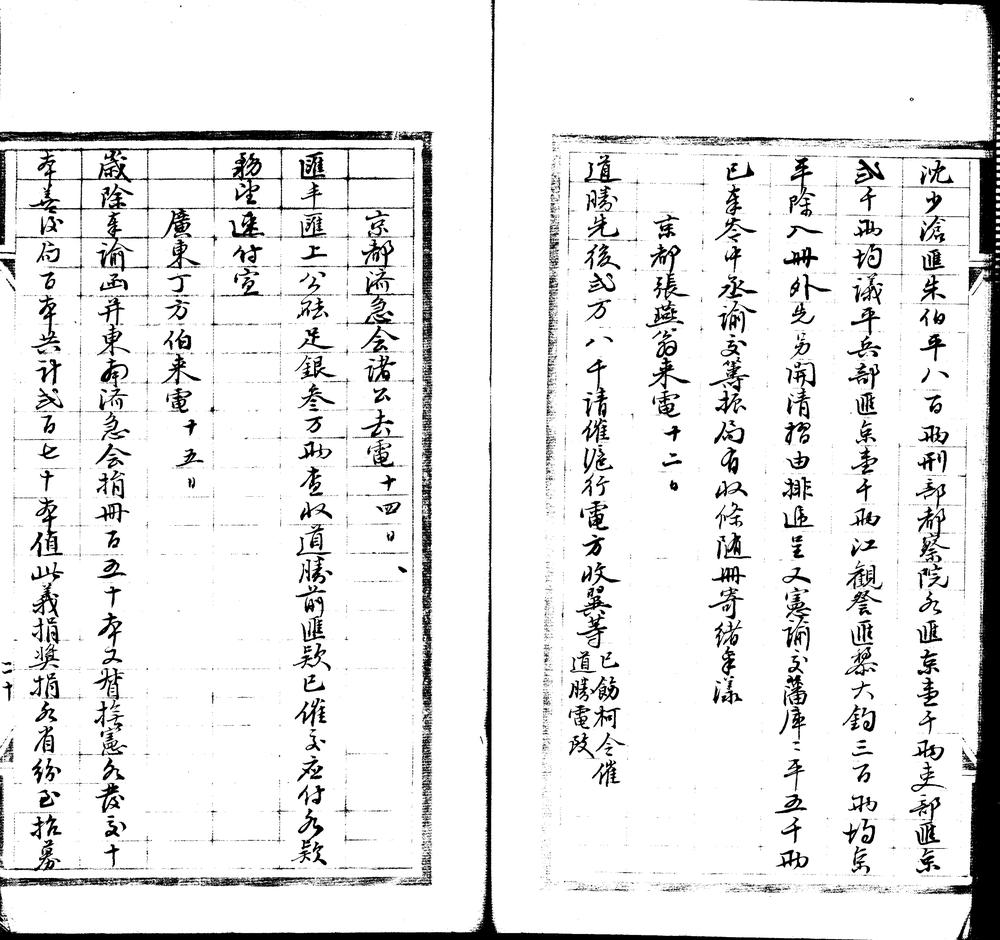 沈少滄匯朱伯平八百兩刑部都察院各匯京壹千兩吏部匯京
弍千兩均議平兵部匯京壹千兩江觀詧匯黎大鈞三百兩均京
平除入冊外先另開清摺由排遞呈又憲諭交藩庫二平五千兩
已奉岺中丞諭交籌振局有收條随冊寄緒年漾
京都張燕翁来電十二日
道勝先後弍万八千請催滬行電方收翼等
已飭柯令催
道勝電致
京都济急会诸公去電十四日
匯丰匯上公砝足銀叁万兩查收道勝前匯欵已催交应付各欵
務望速付宣
廣東丁方伯来電十五日
歲除奉諭函并東南济急会捐冊百五十本又督撫憲各發交十
本善後局百本共计弍百七十本值此義捐奖捐各省紛至招募
二十